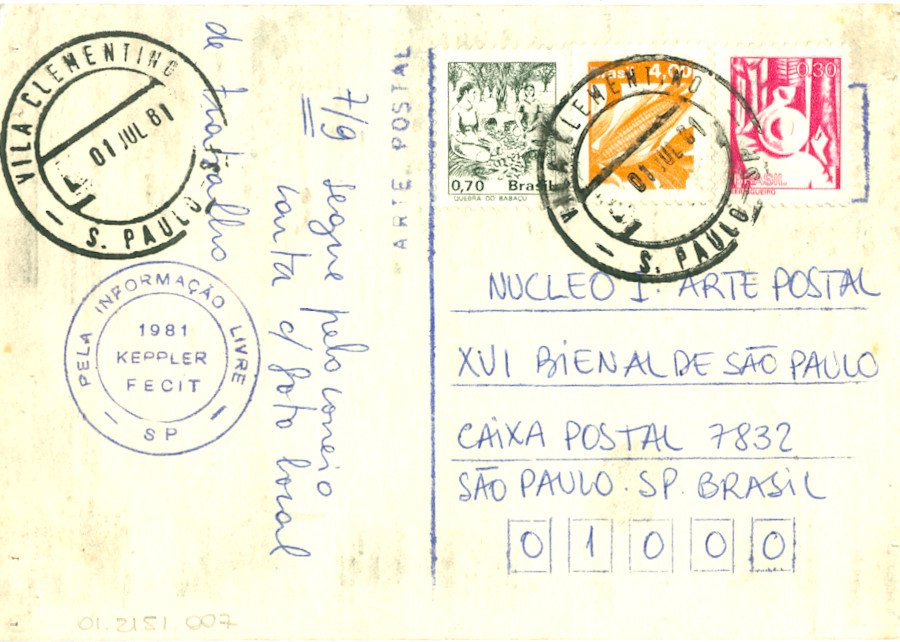 VILA CLEMENTINO
01 JUL 81
S. PAULO
PELA INFORMAÇÃO LIVRE
1981
KEPPLER
FECIT
SP
7/9 segue pelo correio
carta c/ foto local
de trabalho
ARTE POSTAL
0,70 Brasil
QUEBRA DO BABAÇU
Brasil 4,00
0,30
BRASIL
SERINGUEIRO
VILA CLEMENTINO
01 JUL 81
S. PAULO
NUCLEO I. ARTE POSTAL
XVI BIENAL DE SÃO PAULO
CAIXA POSTAL 7832
SÃO PAULO. SP. BRASIL
0 1 0 0 0
01.2151 007